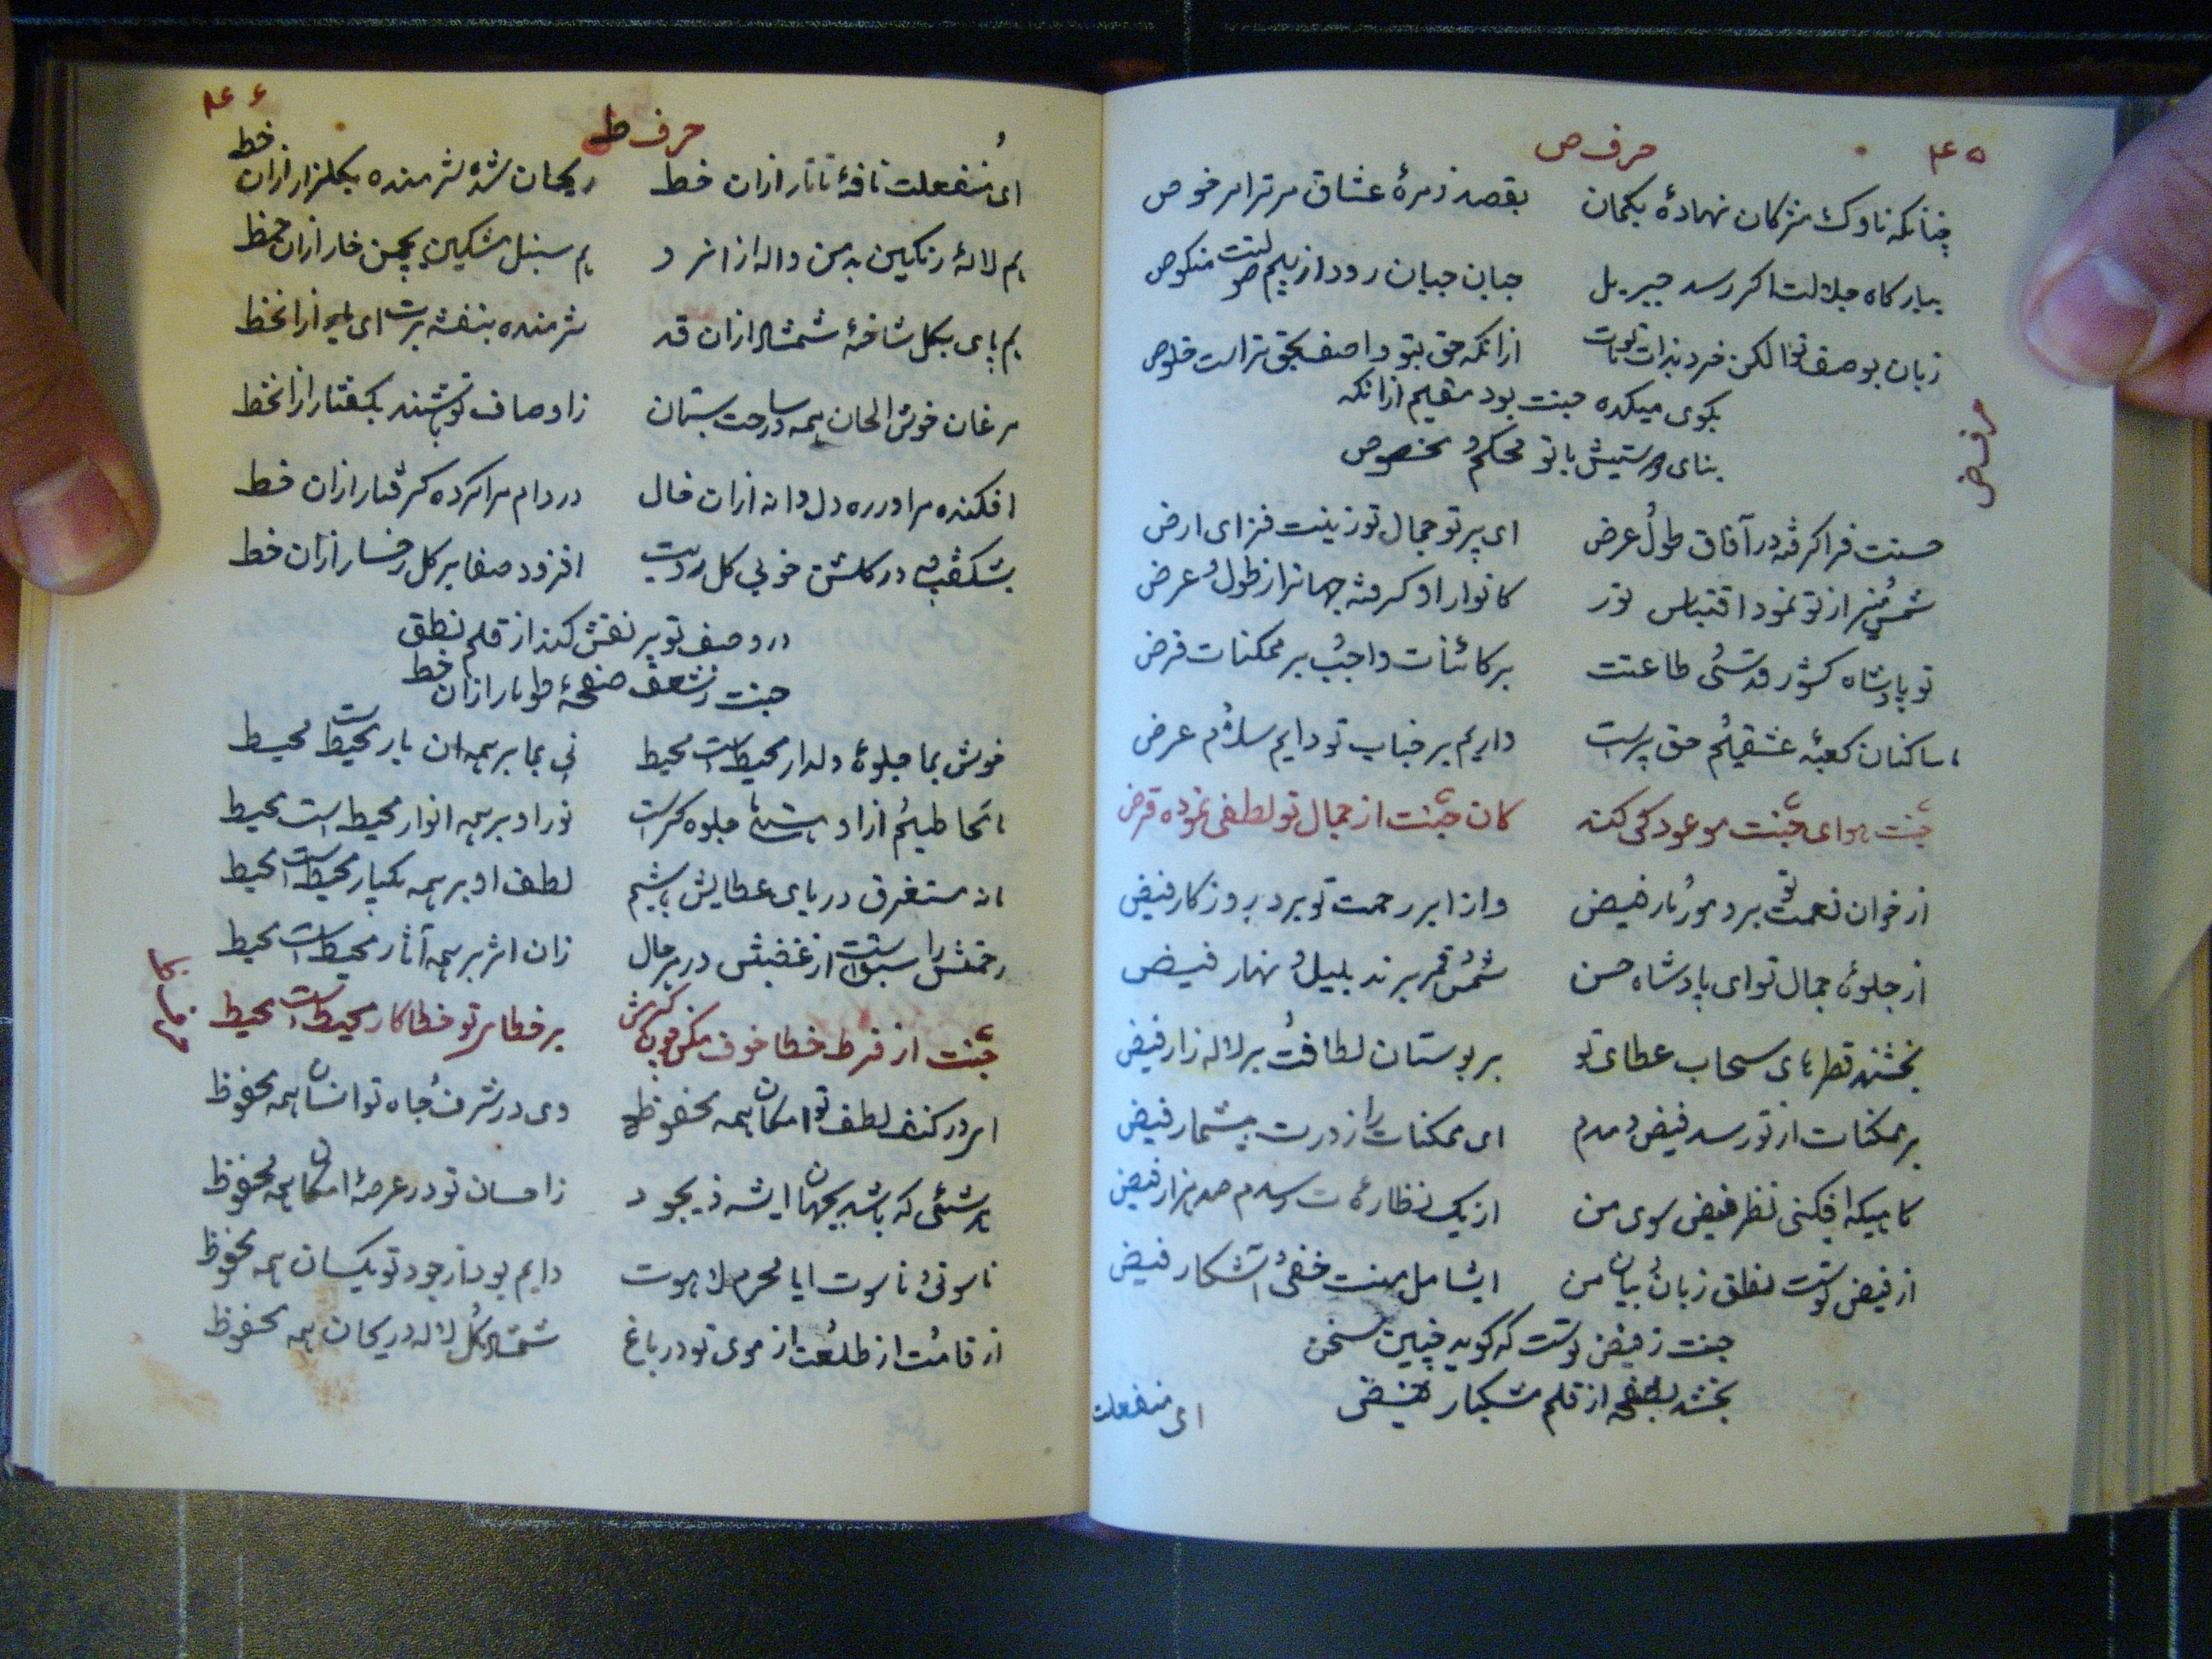 ۴۵
حرف ص
چنانکه ناوک مژکان نهادهٔ بکمان بقصد زمرهٔ عشاق مر ترا مرخوص
ببارکاه جلالت اکر رسد جبریل جبان جبان رود از بیم صولتت منکوص
زبان بوصف تو الکن خرد بذات تو مات ازانکه حق بتو واصف بحق تراست خلوص
بکوی میکده جنت بود مقیم ازانکه
بنای پرستیش با تو محکم و مخصوص
حرف ض
حسنت فرا کرفته در آفاق طول و عرض ای پرتو جمال تو زینت فزای ارض
شمس منیر از تو نمود اقتباس نور کانوار او کرفته جهانرا ز طول و عرض
تو پادشاه کشور قدسی و طاعتت بر کائنات واجب و بر ممکنات فرض
ساکنان کعبهٔ عشقیم و حق پرست داریم بر جناب تو دایم سلام عرض
جنت هوای جنت موعود کی کند کان جنت از جمال تو لطفی نموده قرض
از خوان نعمت تو برد مور و مار فیض واز ابر رحمت تو برد روزکار فیض
از جلوهٔ جمال تو ای پادشاه حسن شمس و قمر برند بلیل و نهار فیض
بخشند قطرهای سحاب عطای تو بر بوستان لطافت و بر لاله زار فیض
بر ممکنات از تو رسد فیض دمبدم ای ممکنات را ز درت بیشمار فیض
کاهیکه افکنی نظر فیض سوی من از یک نظاره ات رسدم صد هزار فیض
از فیض تست نطق زبان و بیان من ایشامل بمنت خفی و آشکار فیض
جنت ز فیض تست که کوید چنین سخن
بخشد بصفحه از قلم مشکبار فیض
ای منفعلت
۴۶
حرف ط
ای منفعلت نافهٔ تاتار ازان خط ریحان شدهٔ شرمنده بکلزار ازان خط
هم لالهٔ رنکین بدمن واله ازانرو هم سنبل مشکین بچمن خار ازان خط
هم پای بکل شاخهٔ شمشاد ازان قد شرمنده بنفشه برت ای یار ازانخط
مرغان خوش الحان همه در ساحت بستان ز اوصاف تو باشند بکفتار ازانخط
افکنده مرا در ره دل دانه ازان خال در دام مرا کرده کرفتار ازان خط
بشکفته در کلشن خوبی کل رویت افزود صفا بر کل رخسار ازان خط
در وصف تو پر نقش کند از قلم نطق
جنت ز شعف صفحهٔ طومار ازان خط
خوش بما جلوهٔ دلدار محیط است محیط نی بما بر همه ان یار محیط است محیط
نور او بر همه انوار محیط است محیط
مستغرق دریای عطایش باشیم لطف او بر همه یکبار محیط است محیط
رحمتش را سبقت است از غضبش در هر حال زان اثر بر همه آثار محیط است محیط
جنت از فرط خطا خوف مکن چون کرمش بر خطای تو خطاکار محیط است محیط
حرف ظا
ای در کنف لطف تو امکان همه محفوظ وی در شرف و جاه تو انسان همه محفوظ
هر شئی که باشد بجهان ایشه ذیجود ز احسان تو در عرصهٔ امکان همه محفوظ
ناسوتی و ناسوت ایا محرم لاهوت دایم بود از جود تو یکسان همه محفوظ
از قامت و از طلعت و از موی تو در باغ شمشاد و کل و لاله و ریحان همه محفوظ